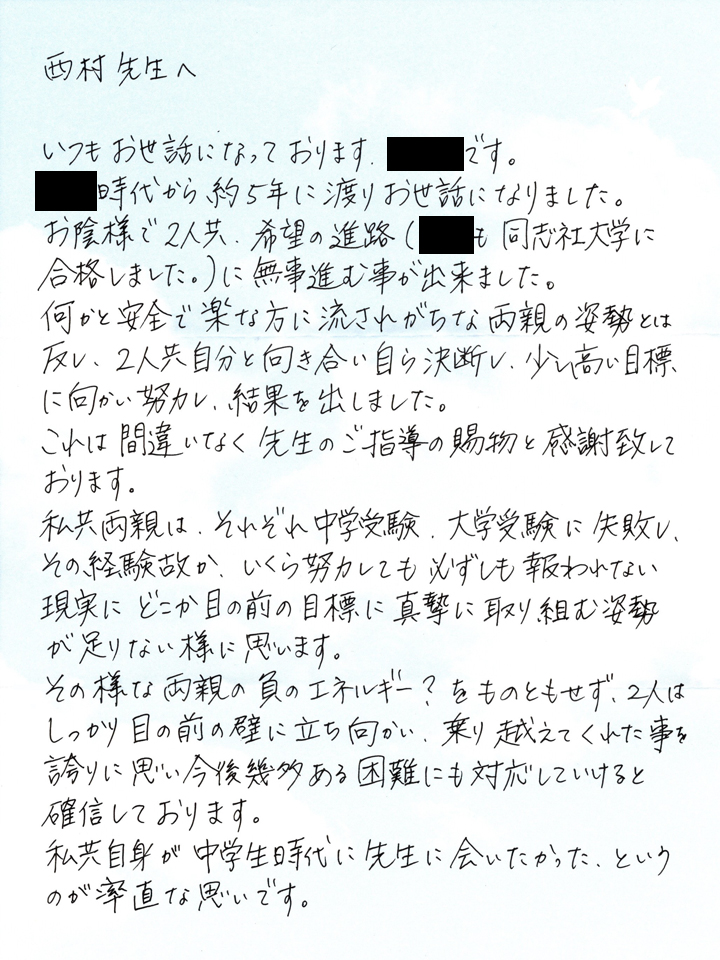 西村先生へ
いつもお世話になっております、です。
時代から約5年に渡りお世話になりました。
お陰様で2人共、希望の進路(も同志社大学に
合格しました。)に無事進む事が出来ました。
何かと安全で楽な方に流されがちな両親の姿勢とは
反し、2人共自分と向き合い自ら決断し、少し高い目標
に向かい努力し、結果を出しました。
これは間違いなく先生のご指導の賜物と感謝致して
おります。
私共両親は、それぞれ中学受験、大学受験に失敗し、
その経験故か、いくら努力しても必ずしも報われない
現実にどこか目の前の目標に真摯に取り組む姿勢
が足りない様に思います。
その様な両親の負のエネルギー?をものともせず、2人は
しっかり目の前の壁に立ち向かい、乗り越えてくれた事を
誇りに思い今後幾多ある困難にも対応していけると
確信しております。
私共自身が中学生時代に先生に会いたかった、という
のが率直な思いです。